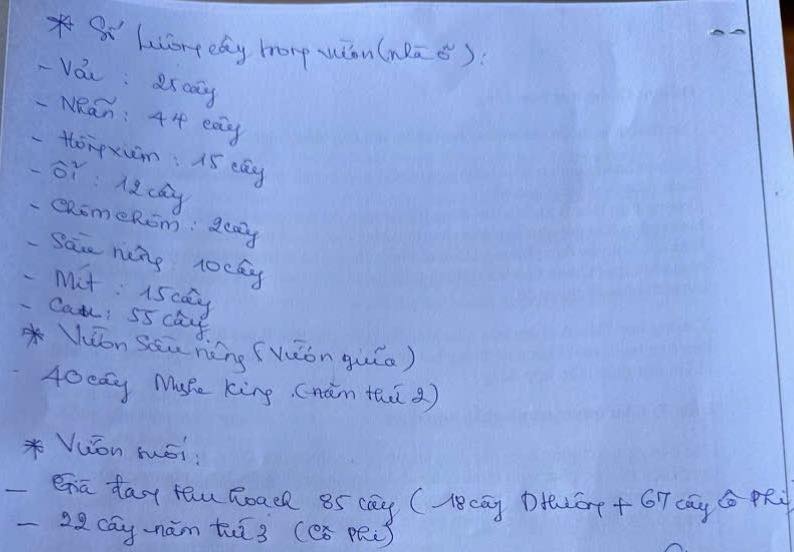 * Số lượng cây trong vườn (nhà ở):
- Vải : 25 cây
- Nhãn: 44 cây
- Hồng xiêm : 15 cây
- Ổi : 12 cây
- Chôm chôm : 2 cây
- Sầu riêng 10 cây
- Mít : 15 cây
- Cau: 55 cây
* Vườn Sầu riêng (Vườn giữa)
40 cây Mushe King (năm thứ 2)
* Vườn suối:
- thu hoạch 85 cây ( 18 cây D thường + 67 cây Cô Phi
- 22 cây năm thứ 3 (Cô Phi)